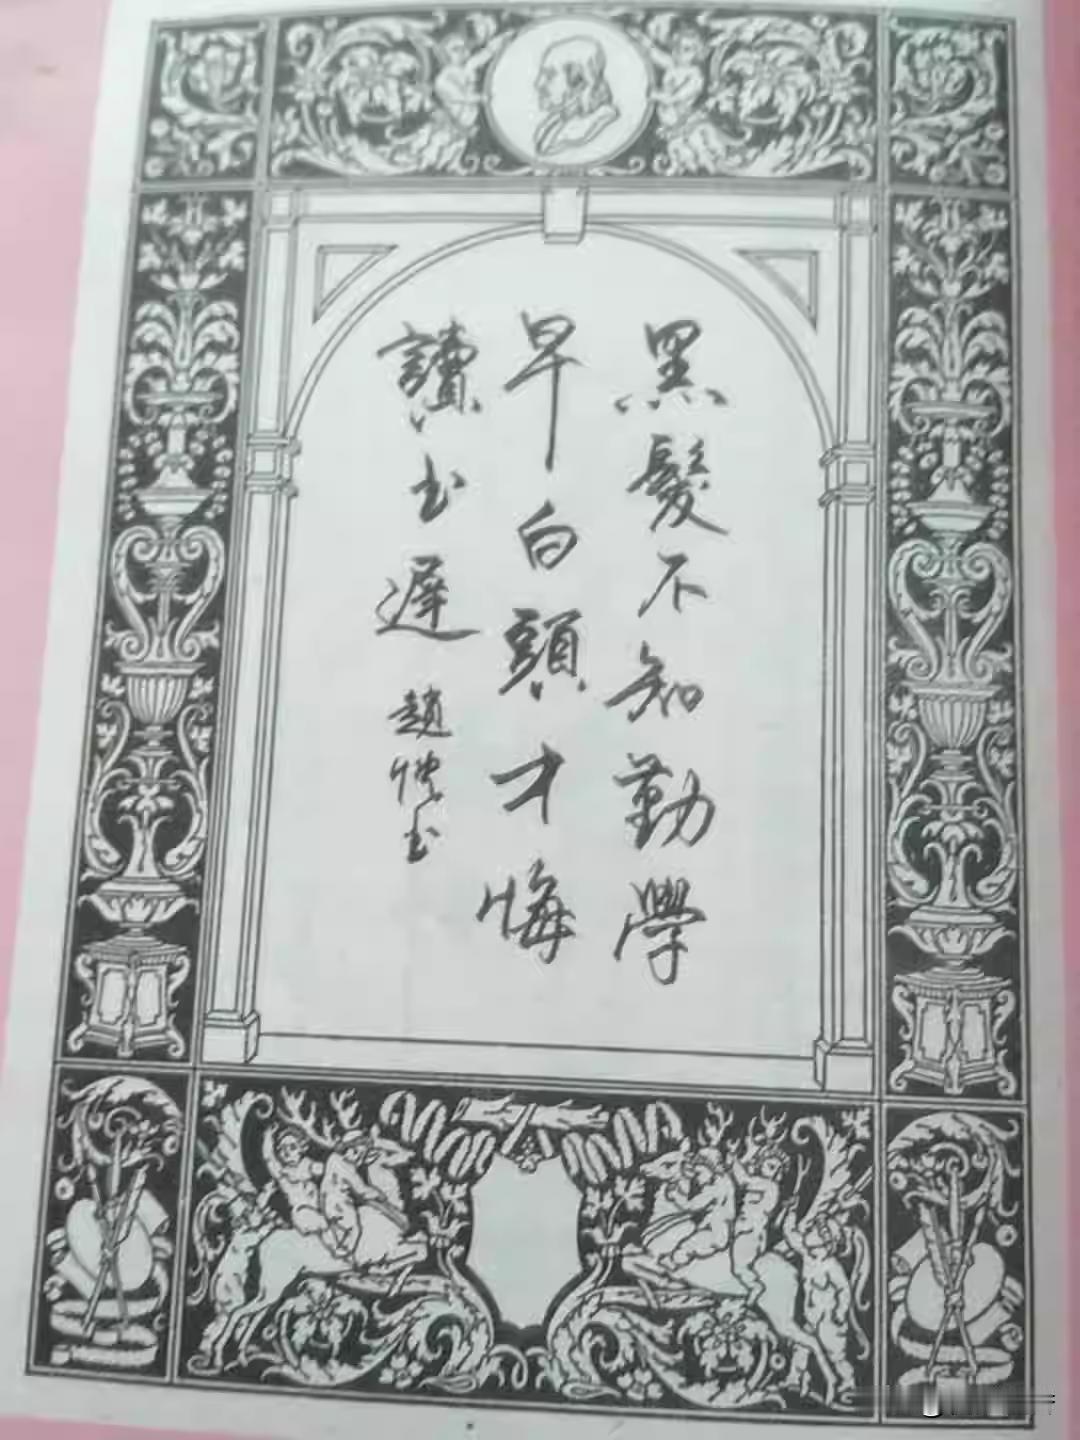 黑髮不知勤學
早白頭才悔
讀书遲
趙
书